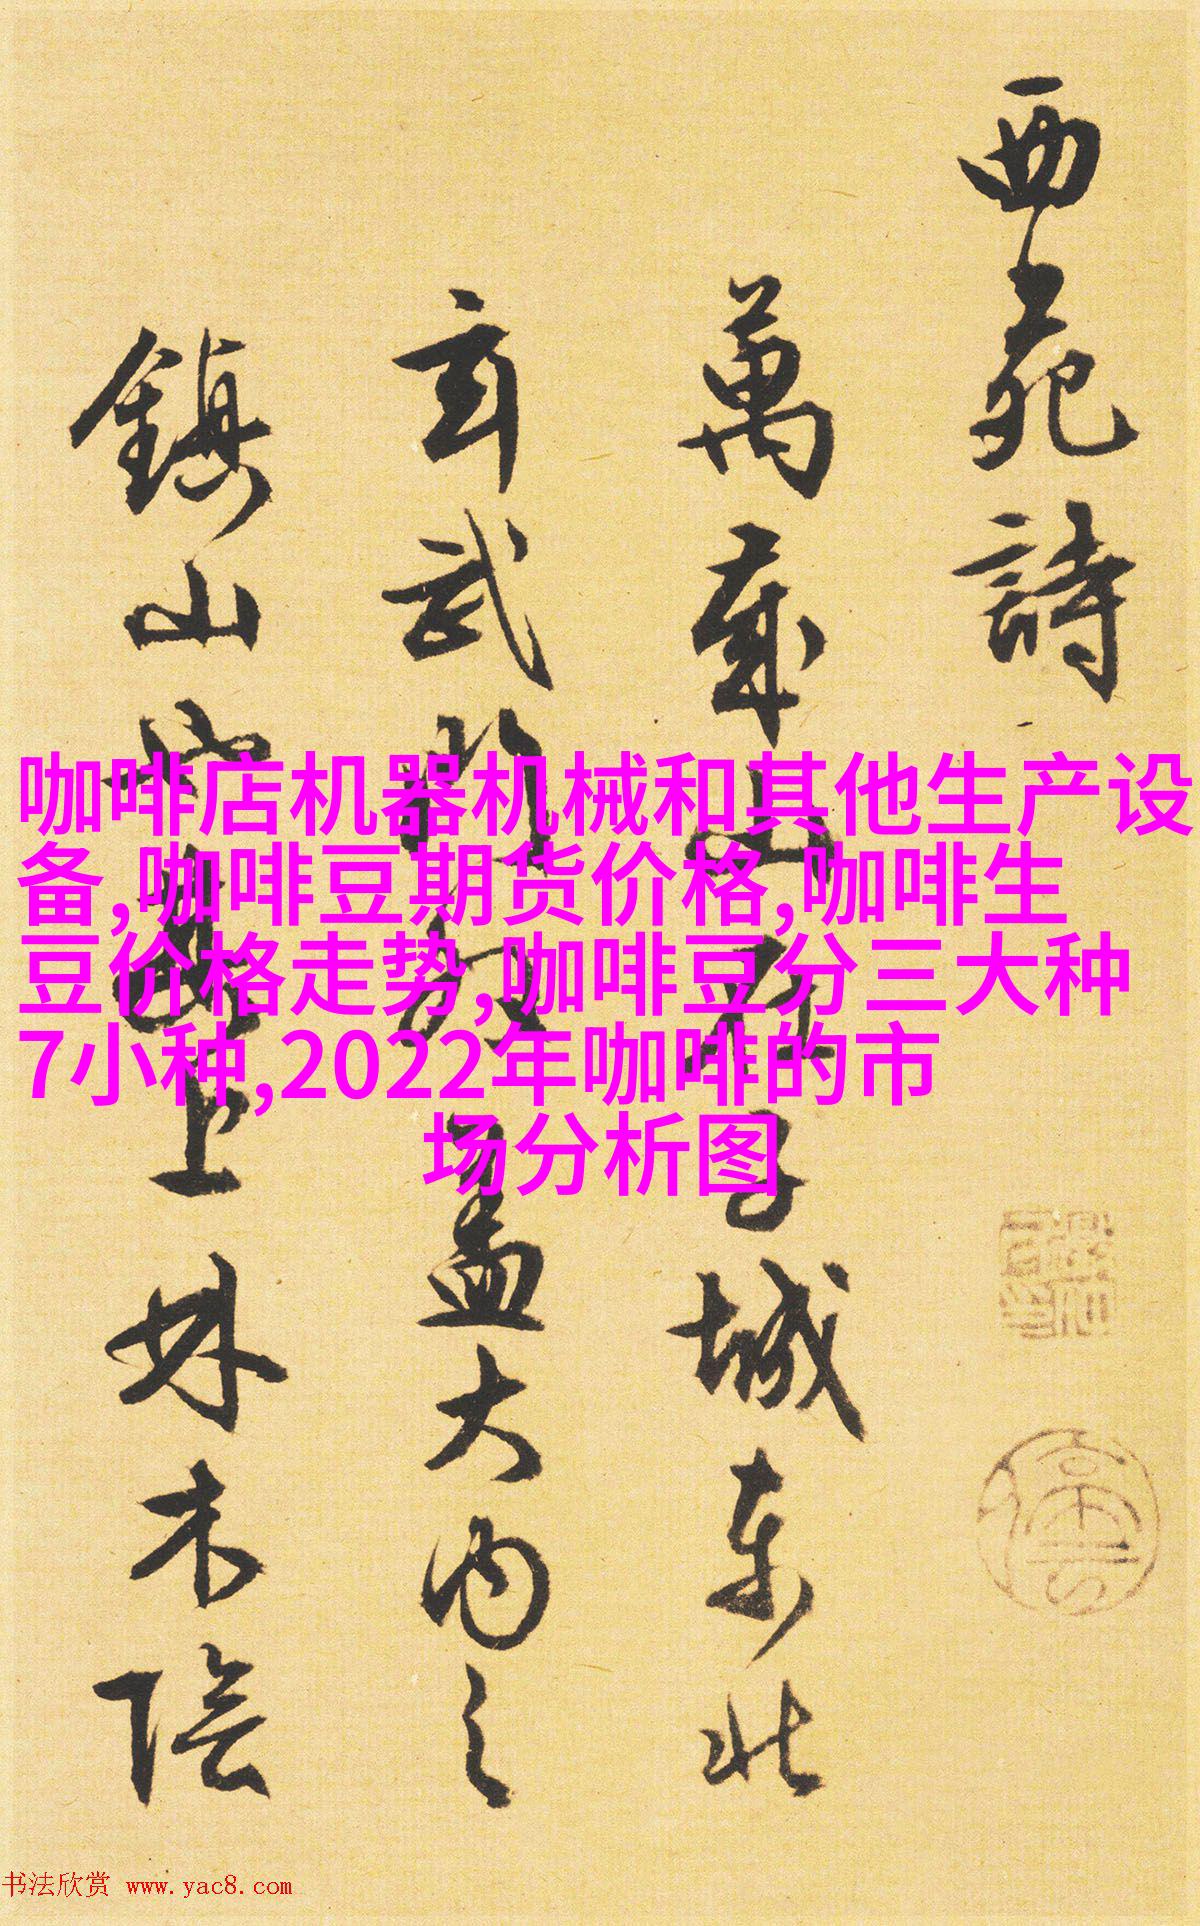 西苑詩
萬歲山在子城東北
玄武門外盖大内之
鎮山上林木陰
咖啡店机器机械和其他生产设
备,咖啡豆期货价格,咖啡生
豆价格走势,咖啡豆分三大种
7小种,2022年咖啡的市
场分析图
书法欣赏 www.yac8.com